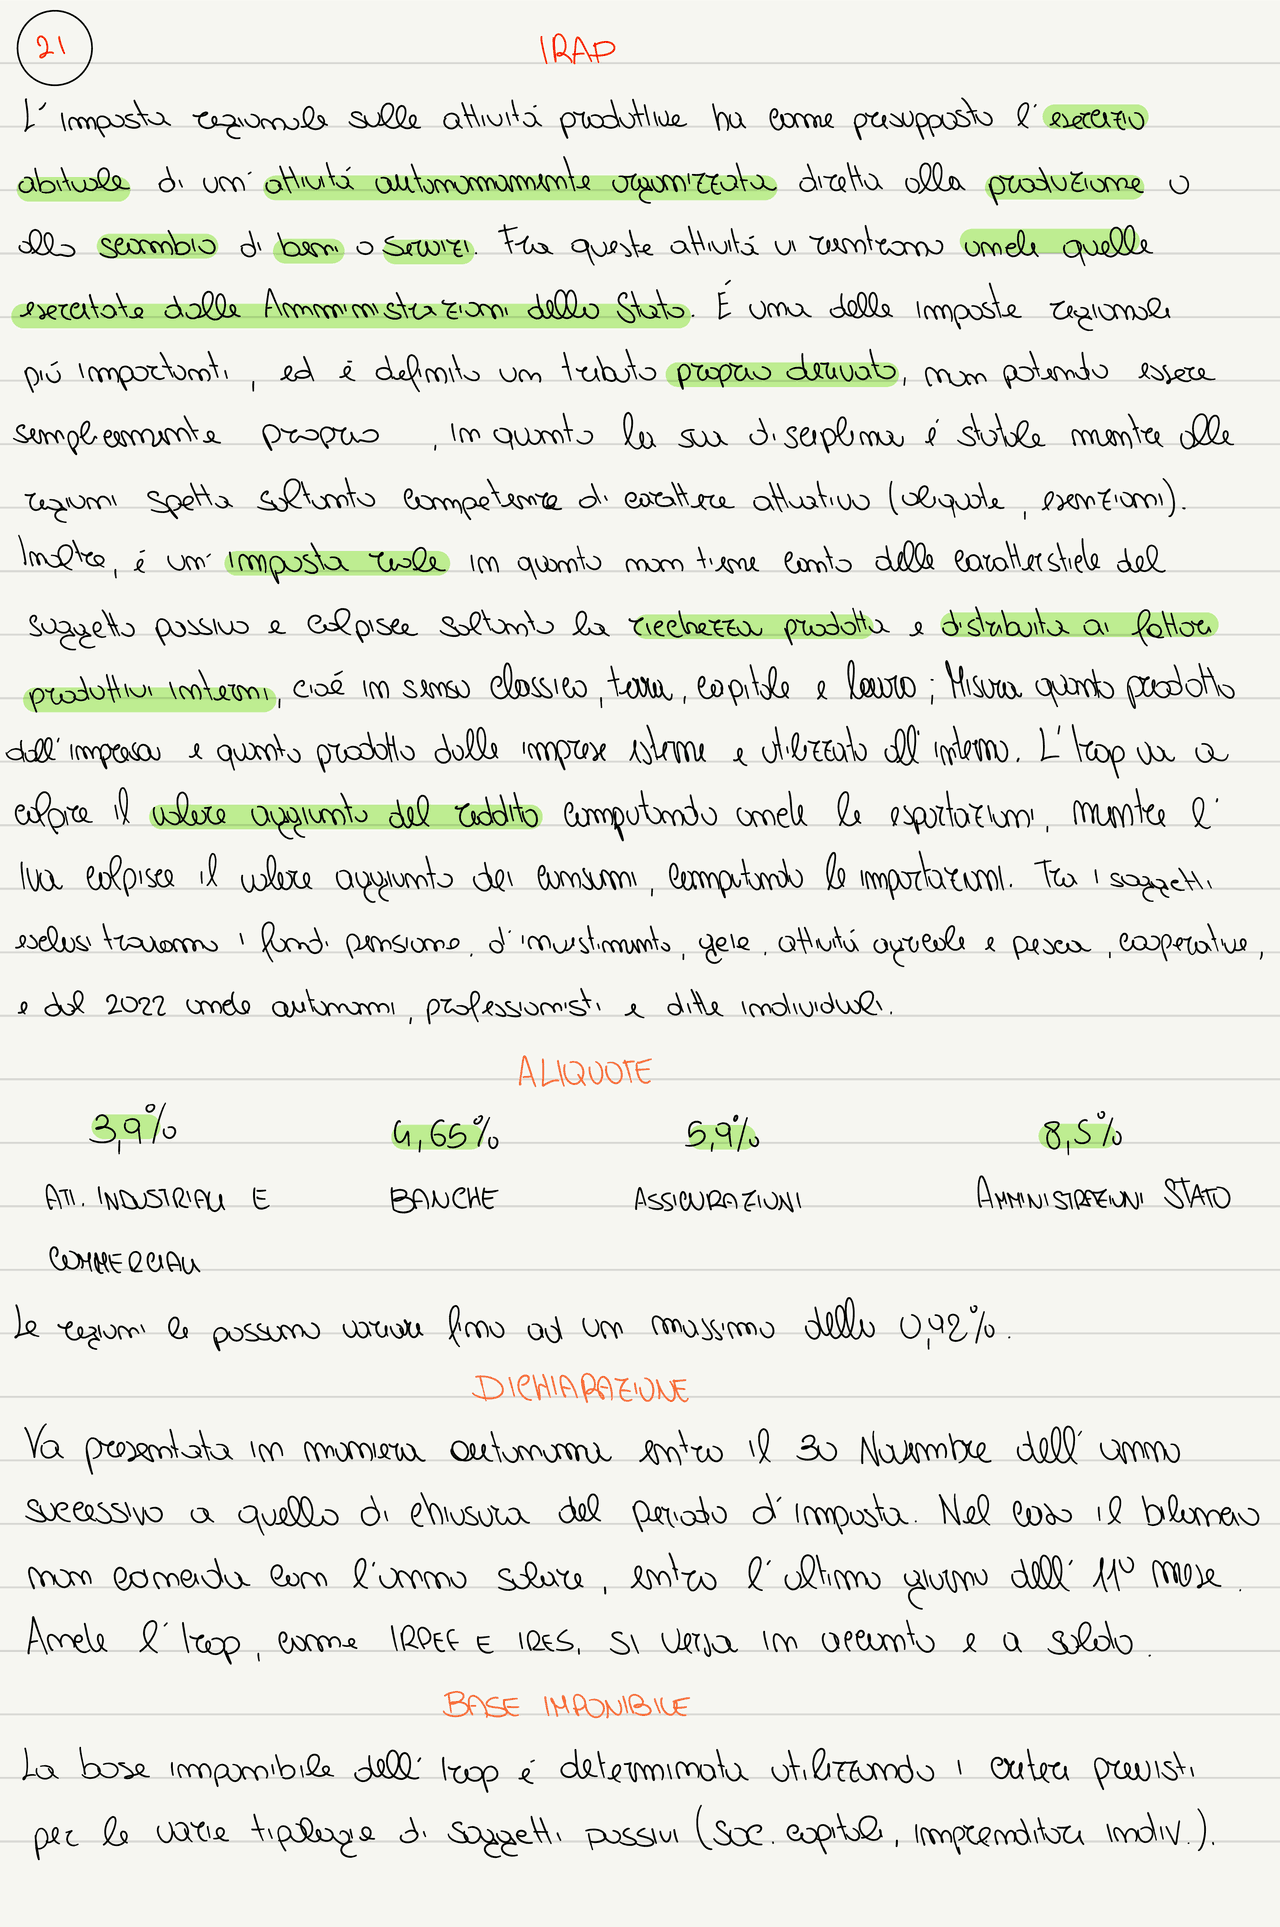 21
IRAP
L'imposta regionale sulle attività produttive ha come presupposto l'esercizio
abituale di un' attività autonomamente organizzata diretta alla produzione o
allo scambio di beni o servizi. Fra queste attività vi rientrano anche quelle
esercitate dalle Amministrazioni dello Stato. È una delle imposte regionali
più importanti, ed è definito un tributo proprio derivato, non potendo essere
semplicemente proprio, in quanto la sua disciplina è statale mentre alle
regioni spetta soltanto competenze di carattere attuativo (aliquote, esenzioni).
Inoltre, è un' imposta reale in quanto non tiene conto delle caratterstiche del
soggetto passivo e colpisce soltanto la ricchezza prodotta e distribuita ai fattori
produttivi interni, cioè in senso classico, terra, capitale e lavoro; Misura quanto prodotto
dall'impresa e quanto prodotto dalle imprese esterne e utilizzato all'interno. L'Irap va a
colpire il valore aggiunto del reddito computando anche le esportazioni, mentre l'
Iva colpisce il valore aggiunto dei consumi, computando le importazioni. Tra i soggetti
esclusi troviamo i fondi pensione, d'investimento, geie, attività agricole e pesca, cooperative,
e dal 2022 anche autonomi, professionisti e ditte individuali.
ALIQUOTE
3,9% 4,65% 5,9% 8,5%
ATT. INDUSTRIALI E BANCHE ASSICURAZIONI AMMINISTRAZIONI STATO
COMMERCIALI
Le regioni le possono variare fino ad un massimo dello 0,92%.
DICHIARAZIONE
Va presentata in maniera autonoma entro il 30 Novembre dell'anno
successivo a quello di chiusura del periodo d'imposta. Nel caso il bilancio
non coincida con l'anno solare, entro l'ultimo giorno dell' 11° mese.
Anche l'Irap, come IRPEF E IRES, si versa in acconto e a saldo.
BASE IMPONIBILE
La base imponibile dell' Irap è determinata utilizzando i criteri previsti
per le varie tipologie di soggetti passivi (Soc. capitali, imprenditori indiv.).